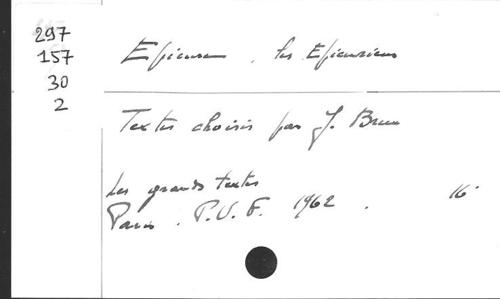 297
157
30
2
Epicure . les Epicuriens
Textes choisis par J. Brun
Les grands textes
Paris . P.U.F. 1962 . 16°